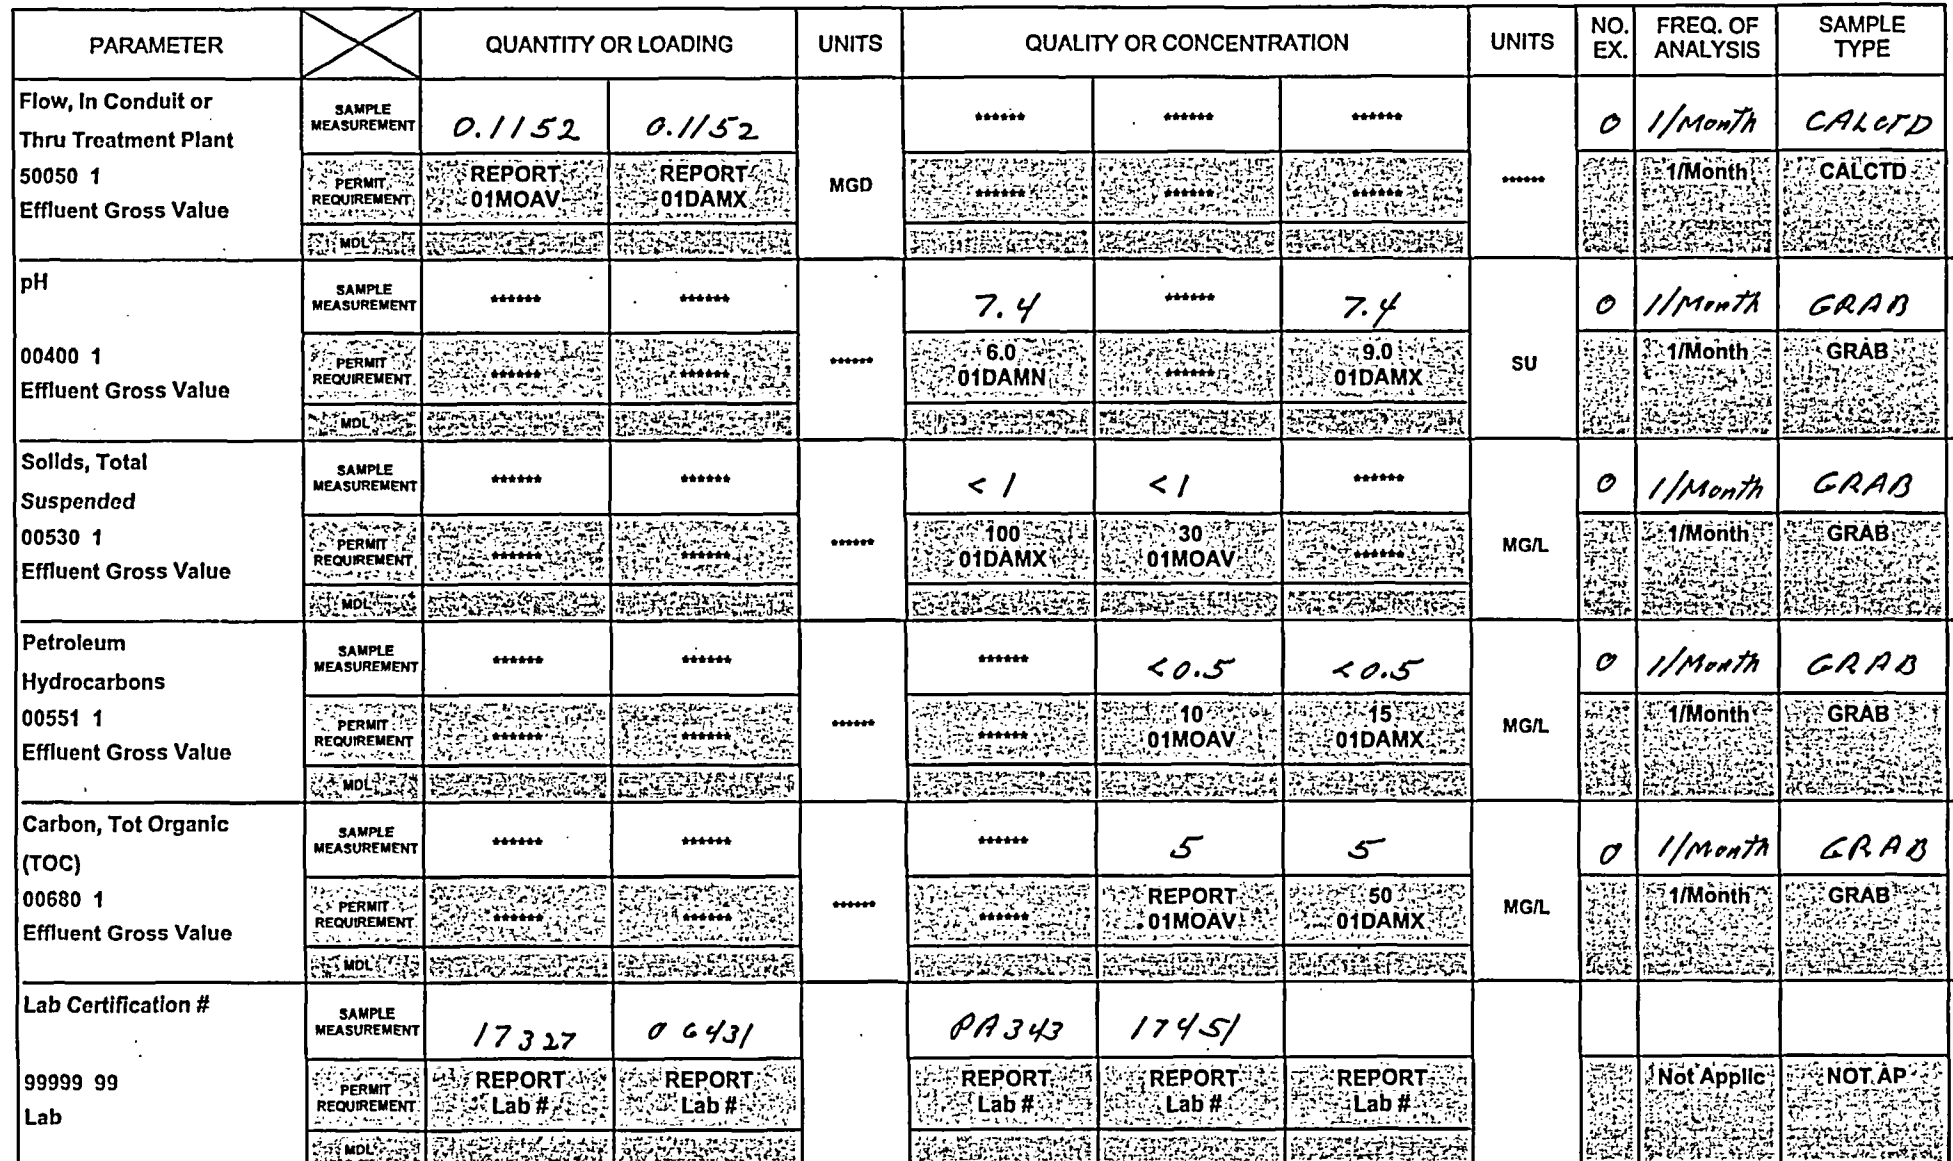 PARAMETER QUANTITY OR LOADING UNITS QUALITY OR CONCENTRATION UNITS NO. EX. FREQ. OF ANALYSIS SAMPLE TYPE
Flow, In Conduit or
Thru Treatment Plant
50050 1
Effluent Gross Value
SAMPLE MEASUREMENT 0.1152 0.1152 ****** ****** ****** 0 1/Month CALCTD
PERMIT REQUIREMENT REPORT 01MOAV REPORT 01DAMX MGD ****** ****** ****** ****** 1/Month CALCTD
MDL
pH
00400 1
Effluent Gross Value
SAMPLE MEASUREMENT ****** ****** 7.4 ****** 7.4 0 1/Month GRAB
PERMIT REQUIREMENT ****** ****** ****** 6.0 01DAMN ****** 9.0 01DAMX SU 1/Month GRAB
MDL
Solids, Total
Suspended
00530 1
Effluent Gross Value
SAMPLE MEASUREMENT ****** ****** <1 <1 ****** 0 1/Month GRAB
PERMIT REQUIREMENT ****** ****** ****** 100 01DAMX 30 01MOAV ****** MG/L 1/Month GRAB
MDL
Petroleum
Hydrocarbons
00551 1
Effluent Gross Value
SAMPLE MEASUREMENT ****** ****** ****** <0.5 <0.5 0 1/Month GRAB
PERMIT REQUIREMENT ****** ****** ****** ****** 10 01MOAV 15 01DAMX MG/L 1/Month GRAB
MDL
Carbon, Tot Organic
(TOC)
00680 1
Effluent Gross Value
SAMPLE MEASUREMENT ****** ****** ****** 5 5 0 1/Month GRAB
PERMIT REQUIREMENT ****** ****** ****** ****** REPORT 01MOAV 50 01DAMX MG/L 1/Month GRAB
MDL
Lab Certification #
99999 99
Lab
SAMPLE MEASUREMENT 17327 06431 PA343 17451
PERMIT REQUIREMENT REPORT Lab # REPORT Lab # REPORT Lab # REPORT Lab # REPORT Lab # Not Applic NOT AP
MDL